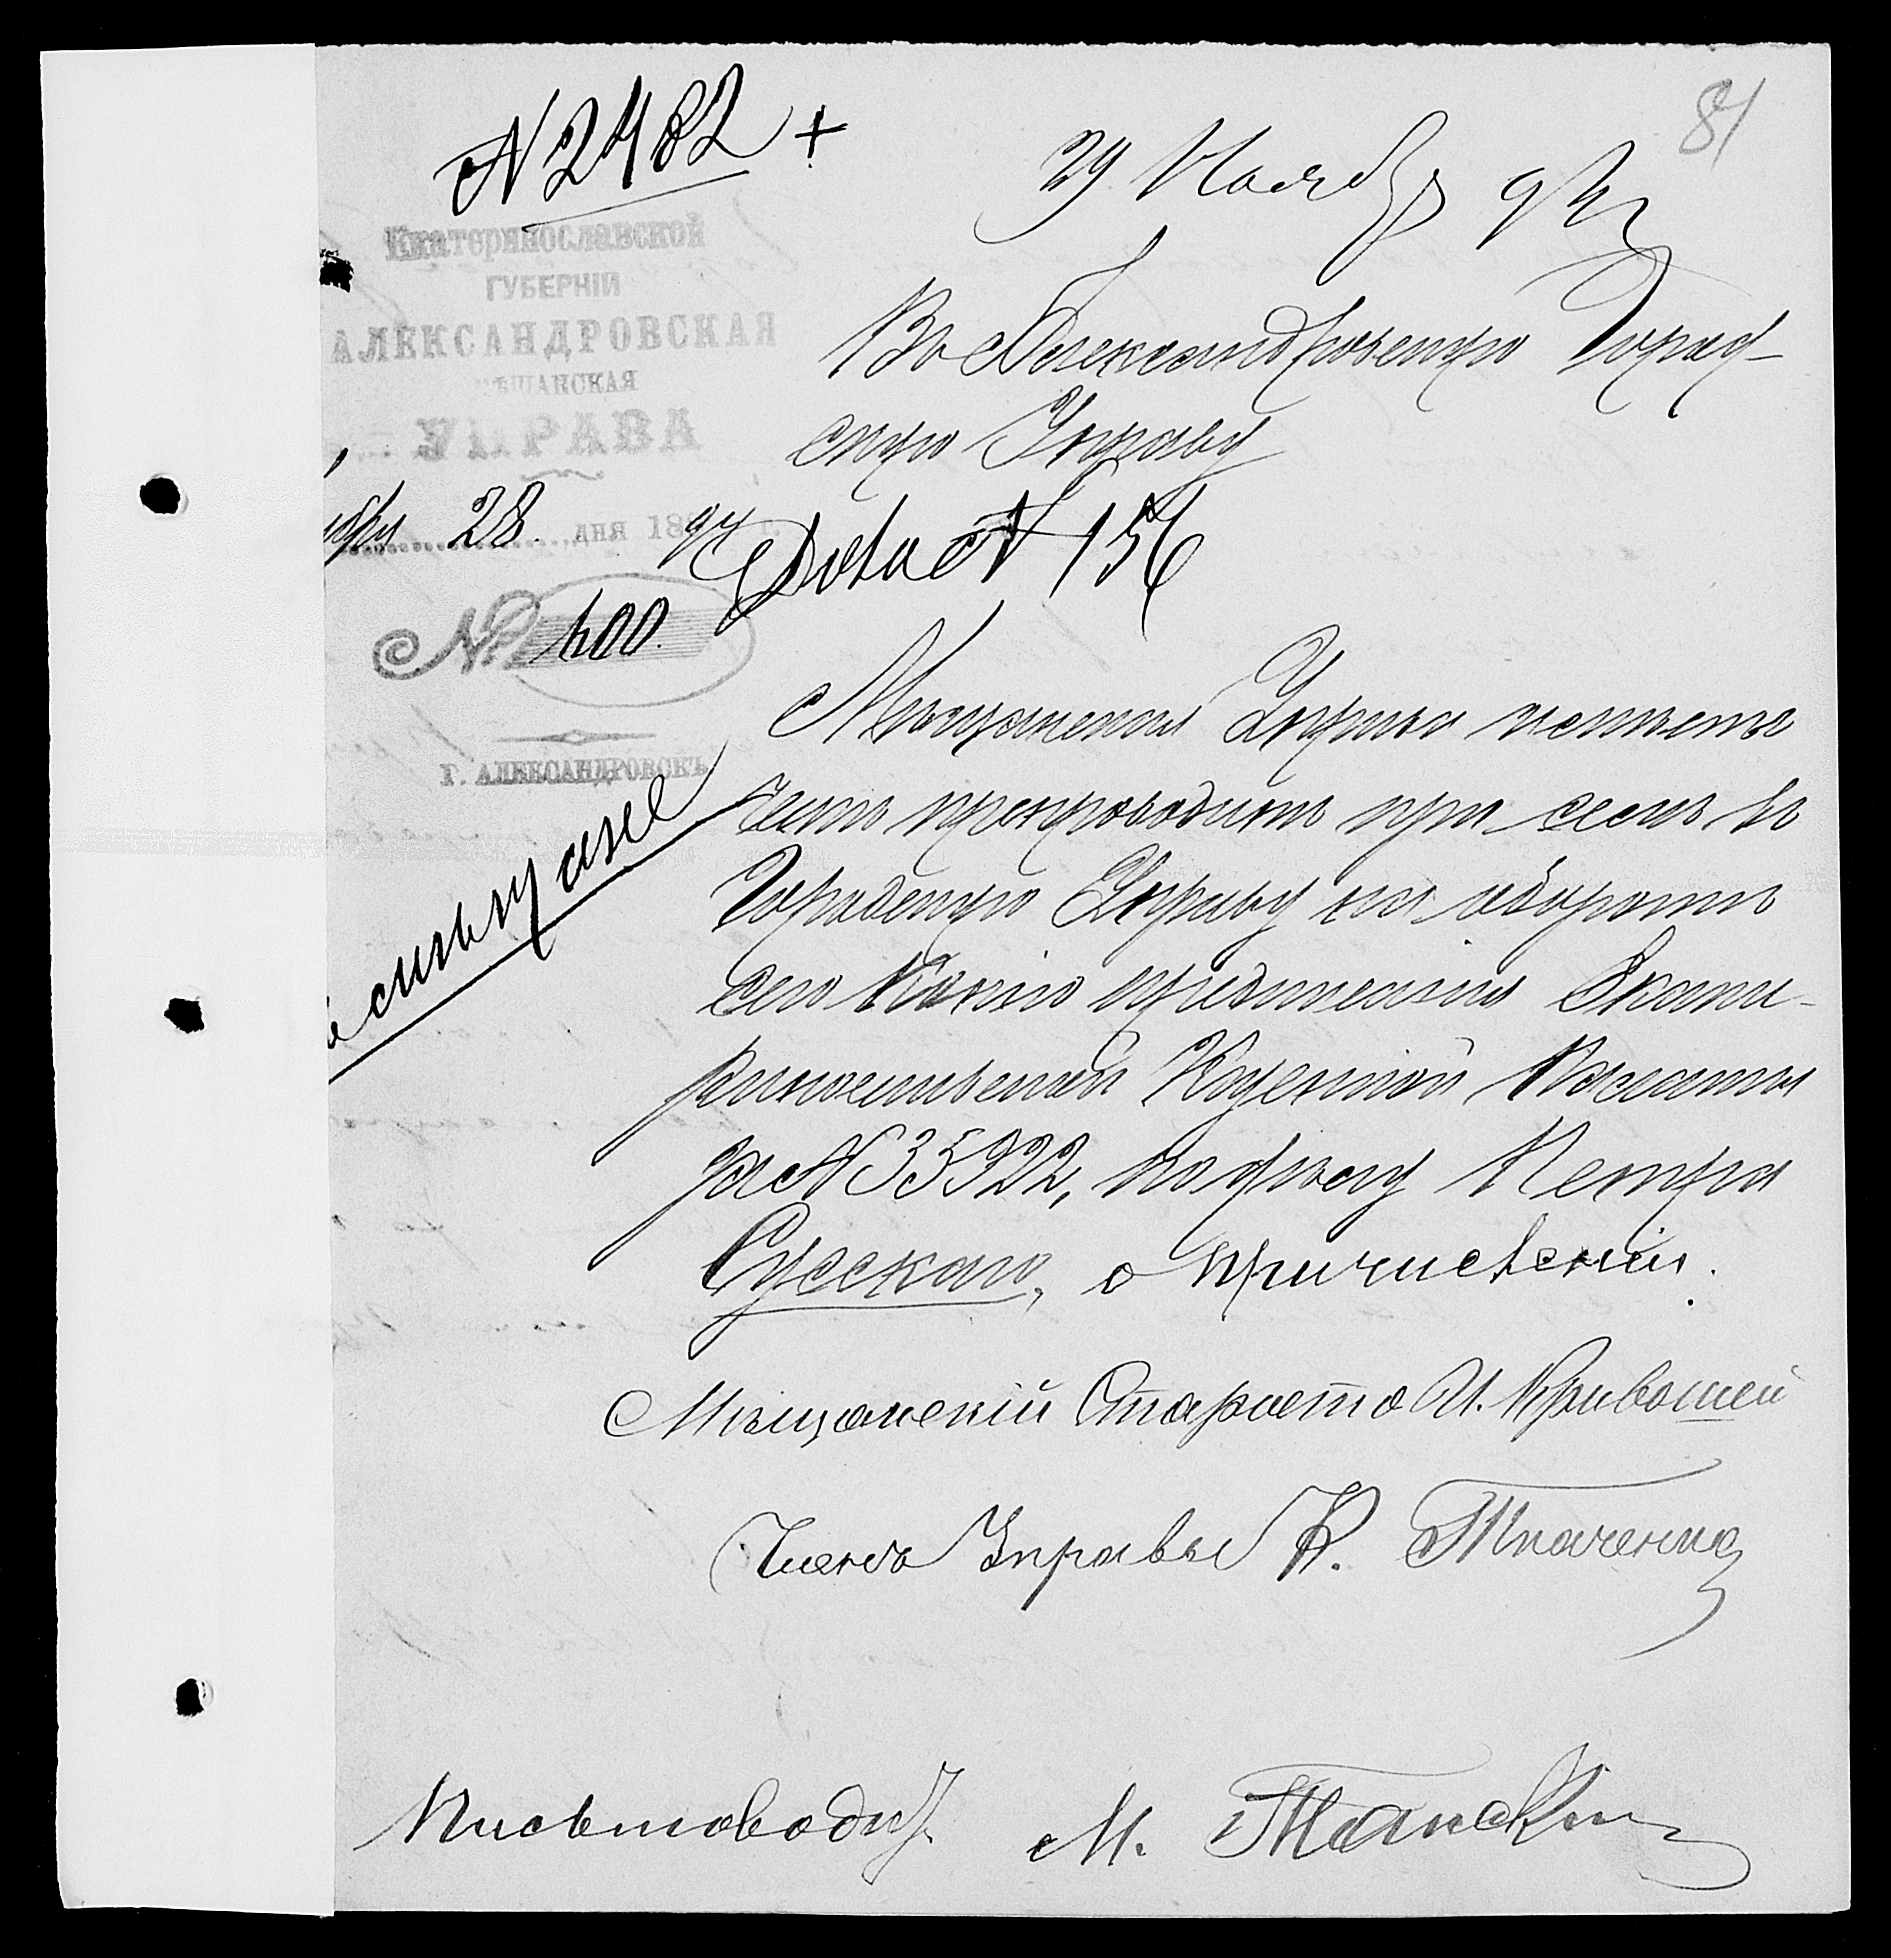 81
N 2482 +
29 Ноября 94 г
Екатеринославской
ГУБЕРНІИ
АЛЕКСАНДРОВСКАЯ
МѢЩАНСКАЯ
УПРАВА
28 дня 189 94
№ 400.
Г. АЛЕКСАНДРОВСКЪ
Въ Александровскую Город-
скую Управу
Дѣло N 156
Мѣщанская Управа имѣетъ
честь препроводить при семъ въ
Городскую Управу на оборотѣ
сего копію предписанія Екате-
ринославской Казенной Палаты
за N 35922, по дѣлу Петра
Сусскаго, о причисленіи.
Мѣщанскій Староста И. Кривошей
Членъ Управы К. Ткаченко
Письмоводит. М.